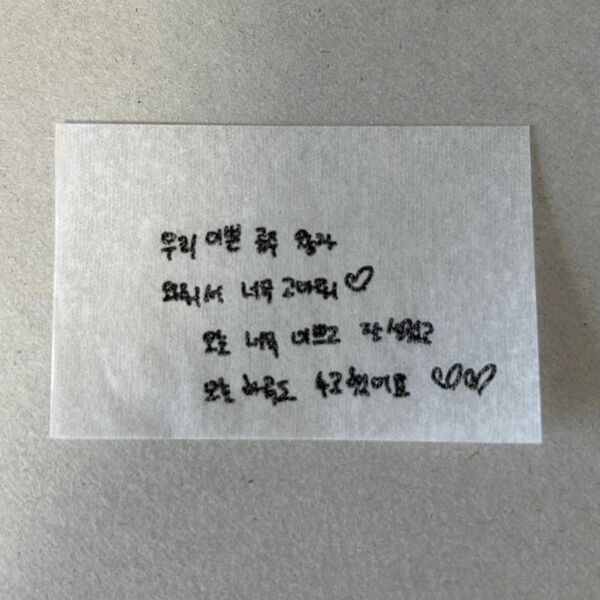 우리 이쁜 공주 왕자
와줘서 너무 고마워
오늘 너무 이쁘고 잘생겼고
오늘 하루도 수고했어요